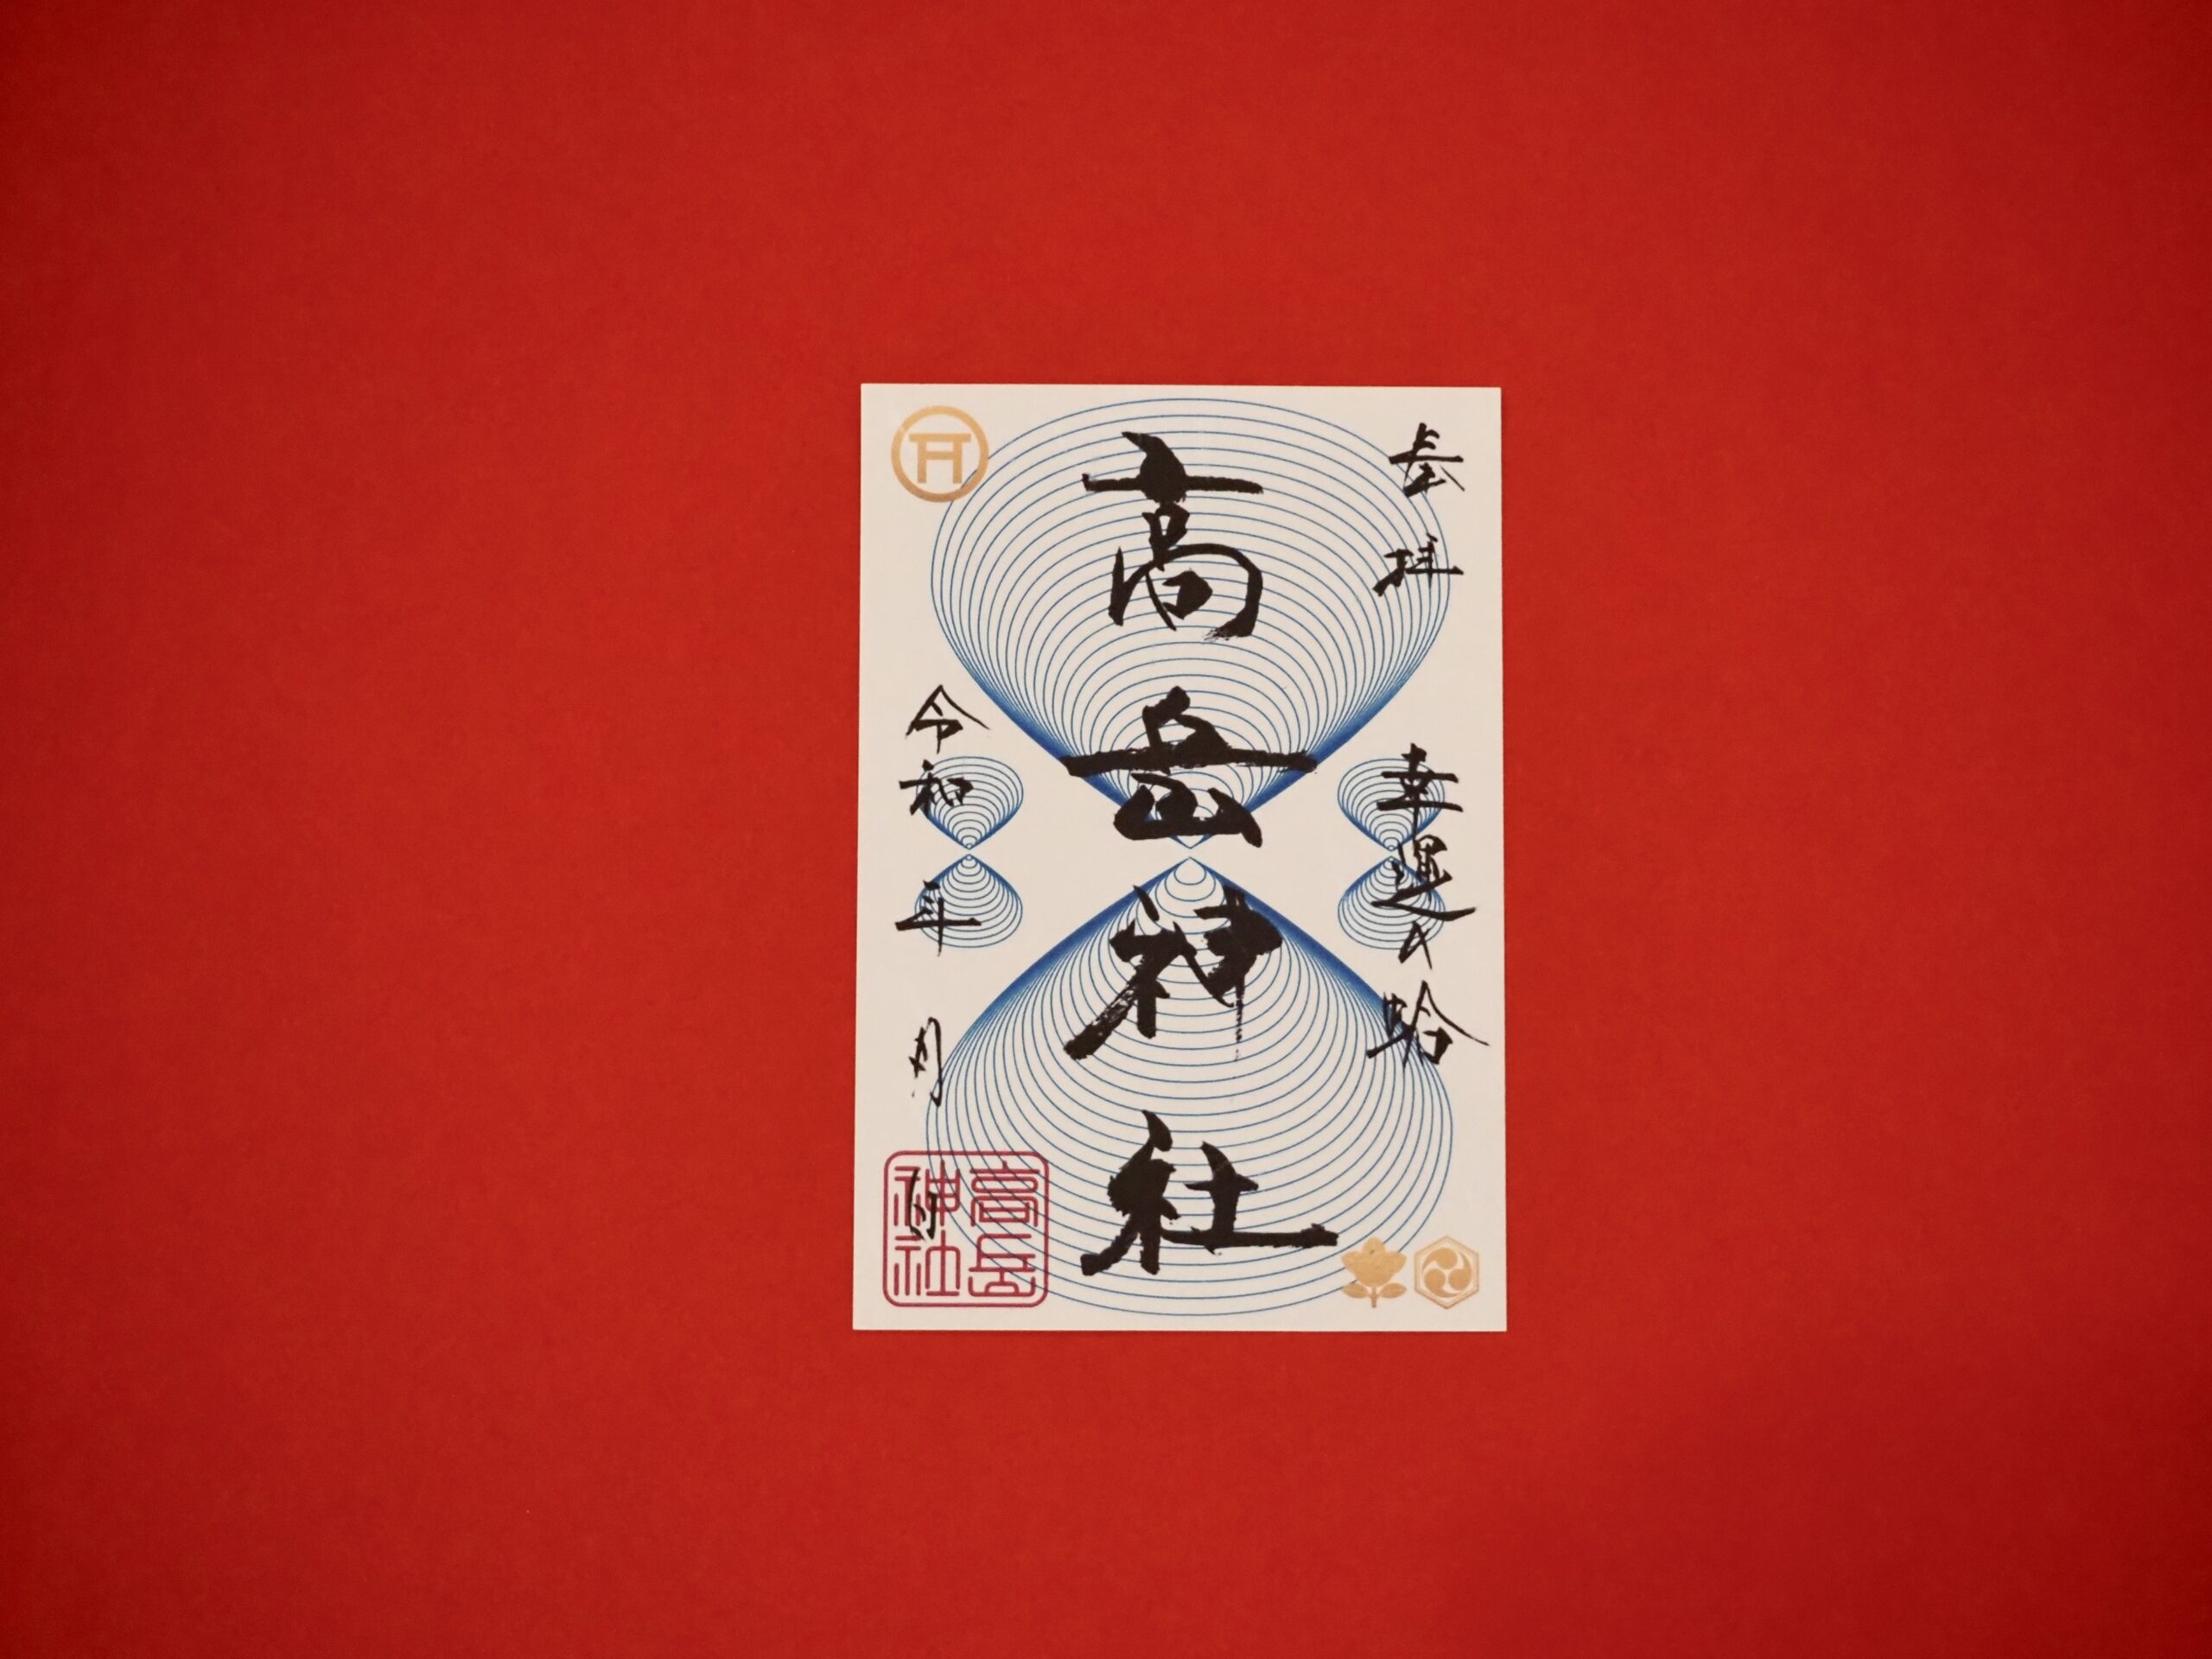 奉拝
幸運の蛤
高岳神社
令和 年 月 日
高岳神社